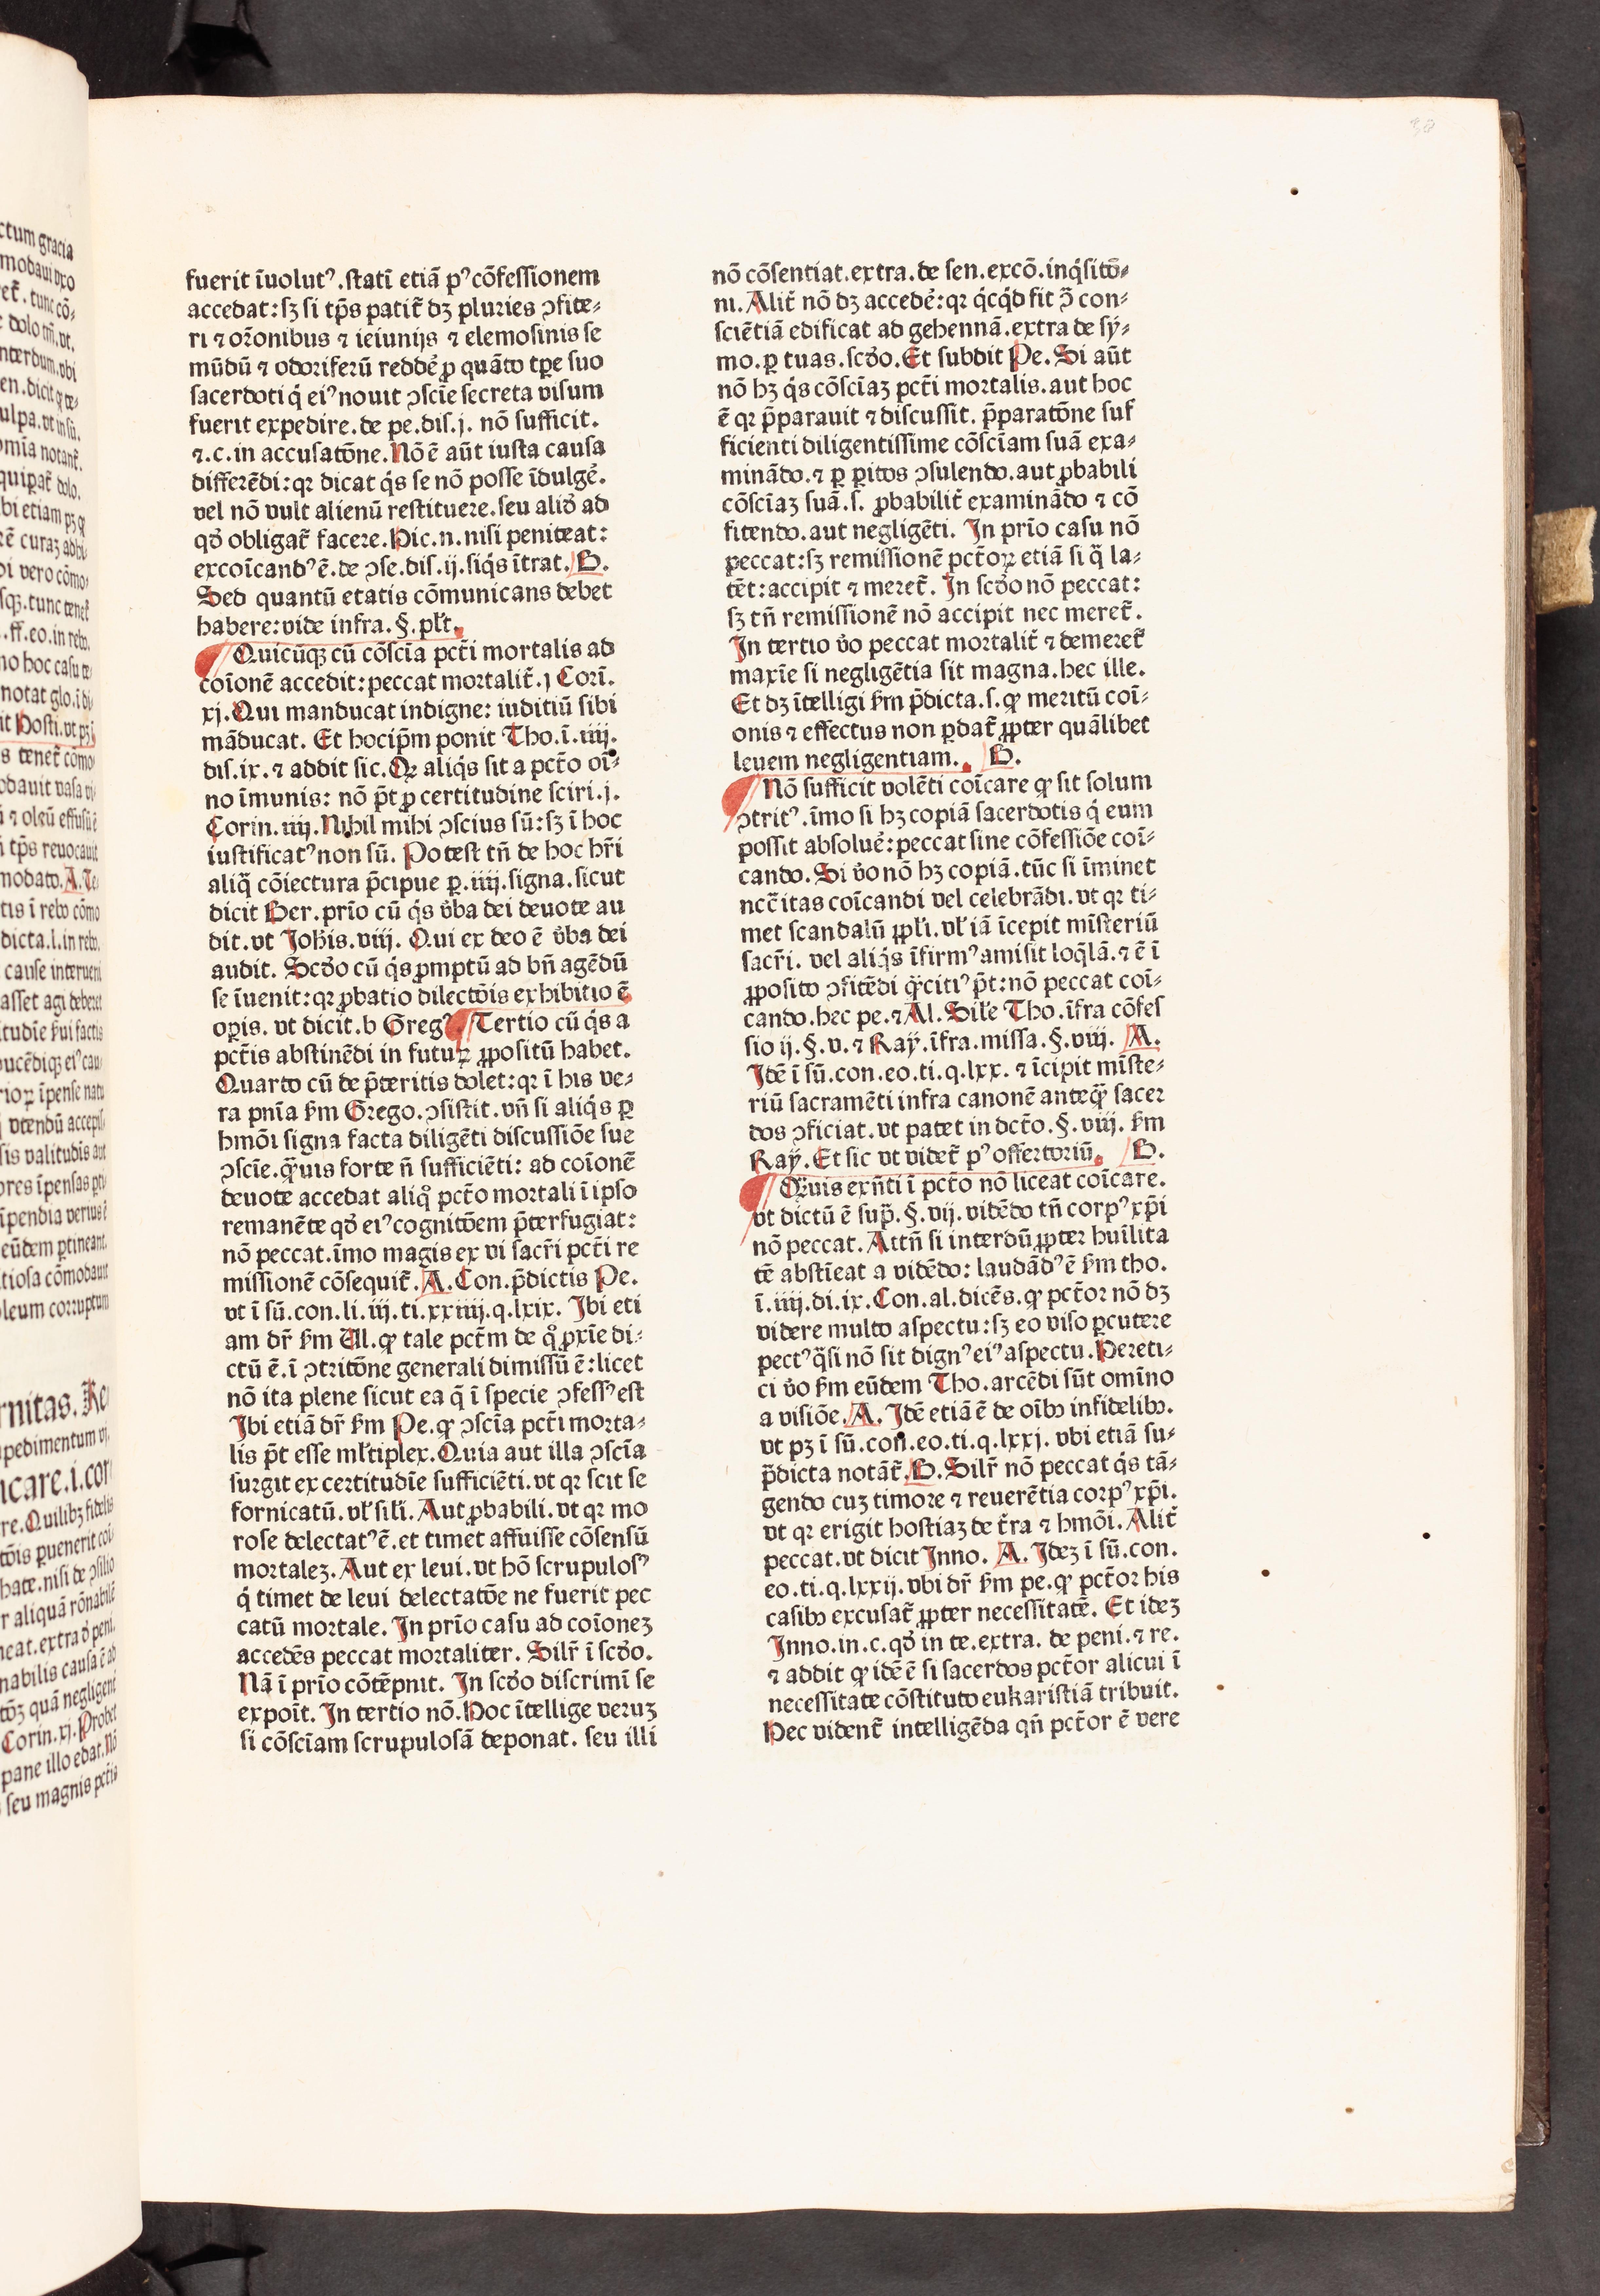 38
fuerit īuolutꝰ.statī etiā pꝰ cōfessionem
accedat:sꝫ si tp̄s patit̄ dꝫ pluries ↄfite⸗
ri ⁊ or̄onibus ⁊ ieiunijs ⁊ elemosinis se
mūdū ⁊ odoriferū redde᷑ ꝓ quāto tꝑe suo
sacerdoti q̇ eiꝰ nouit ↄscīe secreta visum
fuerit expedire.de pe.dis.j. nō sufficit.
⁊.c.in accusatōne.Nō ē aūt iusta causa
differēdi:qr dicat q̇s se nō posse īdulge᷑.
vel nō vult alienū restituere.seu aliđ ad
qđ obligat̄ facere.Hic.n.nisi peniteat:
excoīcandꝰ ē.de ↄse.dis.ij.siq̇s ītrat. B.
Sed quantū etatis cōmunicans debet
habere:vide infra.§.pl̄t.
Quicūqꝫ cū cōscīa pct̄i mortalis ad
coīonē accedit:peccat mortalit̄.j Corī.
xj.Qui manducat indigne: iuditiū sibi
māducat. Et hocip̄m ponit Tho.ī.iiij.
dis.ix.⁊ addit sic.Qꝛ aliq̇s sit a pct̄o oī⸗
no īmunis: nō p̄t ꝓ certitudine sciri.j.
Corin.iiij.Nihil mihi ↄscius sū:sꝫ ī hoc
iustificatꝰ non sū. Potest tn̄ de hoc hr̄i
aliq̄ cōiectura p̄cipue ꝑ.iiij.signa.sicut
dicit Ber.prīo cū q̇s v̄ba dei deuote au
dit.vt Johis.viij. Qui ex deo ē v̄ba dei
audit. Scđo cū q̇s ꝓmptū ad bn̄ agēdū
se īuenit:qr ꝓbatio dilectōis exhibitio ē
oꝑis. vt dicit.b Gregꝰ. Tertio cū q̇s a
pct̄is abstinēdi in futuꝝ ꝓpositū habet.
Quarto cū de p̄teritis dolet:qr ī his ve⸗
ra pnīa ẜm Grego.ↄsistit.vn̄ si aliq̇s ꝑ
hmōi signa facta diligēti discussiōe sue
ↄscīe.q̄uis forte n̄ sufficiēti: ad coīonē
deuote accedat aliq̊ pct̄o mortali ī ipso
remanēte qđ eiꝰ cognitōem p̄terfugiat:
nō peccat.īmo magis ex vi sacr̄i pct̄i re
missionē cōsequit̄.A.Con.p̄dictis Pe.
vt ī sū.con.li.iij.ti.xxiiij.q.lxix. Ibi eti
am dr̄ ẜm Al.ꝙ tale pct̄m de q̊ ꝓxīe di⸗
ctū ē.ī ↄtritōne generali dimissū ē:licet
nō ita plene sicut ea q̄ ī specie ↄfessꝰ est
Ibi etiā dr̄ ẜm Pe.ꝙ ↄscīa pct̄i morta⸗
lis p̄t esse ml̄tiplex.Quia aut illa ↄscīa
surgit ex certitudīe sufficiēti.vt qr scit se
fornicatū.vl̄ sil̄i.Aut ꝓbabili.vt qr mo
rose delectatꝰ ē.et timet affuisse cōsensū
mortaleꝫ.Aut ex leui.vt hō scrupulosꝰ
q̇ timet de leui delectatōe ne fuerit pec
catū mortale. In prīo casu ad coīoneꝫ
accedēs peccat mortaliter. Silr̄ ī scđo.
Nā ī prīo cōtēpnit. In scđo discrimī se
expoīt. In tertio nō.Hoc ītellige veruꝫ
si cōscīam scrupulosā deponat. seu illi
nō cōsentiat.extra.de sen.excō.inq̇sitō⸗
ni.Alit̄ nō dꝫ accede᷑:qr q̇cq̇d fit ꝯ̄ con⸗
sciētiā edificat ad gehennā.extra de sy⸗
mo.ꝑ tuas.scđo.Et subdit Pe.Si aūt
nō hꝫ q̇s cōscīaꝫ pct̄i mortalis.aut hoc
ē qr p̄parauit ⁊ discussit. p̄paratōne suf
ficienti diligentissime cōscīam suā exa⸗
minādo.⁊ ꝑ ꝑitos ↄsulendo.aut ꝓbabili
cōscīaꝫ suā.s. ꝓbabilit̄ examinādo ⁊ cō
fitendo.aut negligēti. In prīo casu nō
peccat:sꝫ remissionē pct̄oꝝ etiā si q̄ la⸗
tēt:accipit ⁊ meret̄. In scđo nō peccat:
sꝫ tn̄ remissionē nō accipit nec meret̄.
In tertio v̄o peccat mortalit̄ ⁊ demeret̄
maxīe si negligētia sit magna.hec ille.
Et dꝫ ītelligi ẜm p̄dicta.s.ꝙ meritū coī⸗
onis ⁊ effectus non ꝑdat̄ ꝓpter quālibet
leuem negligentiam. B.
Nō sufficit volēti coīcare ꝙ sit solum
ↄtritꝰ.īmo si hꝫ copiā sacerdotis q̇ eum
possit absolue᷑:peccat sine cōfessiōe coī⸗
cando. Si v̄o nō hꝫ copiā.tūc si īminet
ncc̄itas coīcandi vel celebrādi.vt qr ti⸗
met scandalū ꝓpl̄i.vl̄ iā īcepit mīsteriū
sacr̄i. vel aliq̇s īfirmꝰ amisit loq̄lā.⁊ ē ī
ꝓposito ↄfitēdi q̄ꝫcitiꝰ p̄t:nō peccat coī⸗
cando.hec pe.⁊ Al.Sil̄e Tho.īfra cōfes
sio ij.§.v.⁊ Ray.īfra.missa.§.viij. A.
Idē ī sū.con.eo.ti.q.lxx.⁊ īcipit mīste⸗
riū sacramēti infra canonē anteq̄ꝫ sacer
dos ↄficiat.vt patet in dct̄o.§.viij. ẜm
Ray.Et sic vt videt̄ pꝰ offertoriū. B.
Qꝛuis exn̄ti ī pct̄o nō liceat coīcare.
vt dictū ē sup̄.§.vij.vidēdo tn̄ corpꝰ xp̄i
nō peccat.Attn̄ si interdū ꝓpter huīlita
tē abstīeat a vidēdo:laudādꝰ ē ẜm tho.
ī.iiij.di.ix.Con.al.dicēs.ꝙ pct̄or nō dꝫ
videre multo aspectu:sꝫ eo viso ꝑcutere
pectꝰ q̄si nō sit dignꝰ eiꝰ aspectu.Hereti⸗
ci v̄o ẜm eūdem Tho.arcēdi sūt omīno
a visiōe.A. Idē etiā ē de oībꝰ infidelibꝰ.
vt pꝫ ī sū.con.eo.ti.q.lxxj. vbi etiā su⸗
p̄dicta notāt̄.B.Silr̄ nō peccat q̇s tā⸗
gendo cuꝫ timore ⁊ reuerētia corpꝰ xp̄i.
vt qr erigit hostiaꝫ de t̄ra ⁊ hmōi.Alit̄
peccat.vt dicit Inno. A. Ideꝫ ī sū.con.
eo.ti.q.lxxij.vbi dr̄ ẜm pe.ꝙ pct̄or his
casibꝰ excusat̄ ꝓpter necessitatē. Et ideꝫ
Inno.in.c.qđ in te.extra. de peni.⁊ re.
⁊ addit ꝙ idē ē si sacerdos pct̄or alicui ī
necessitate cōstituto eukaristiā tribuit.
Hec vident̄ intelligēda qn̄ pct̄or ē vere